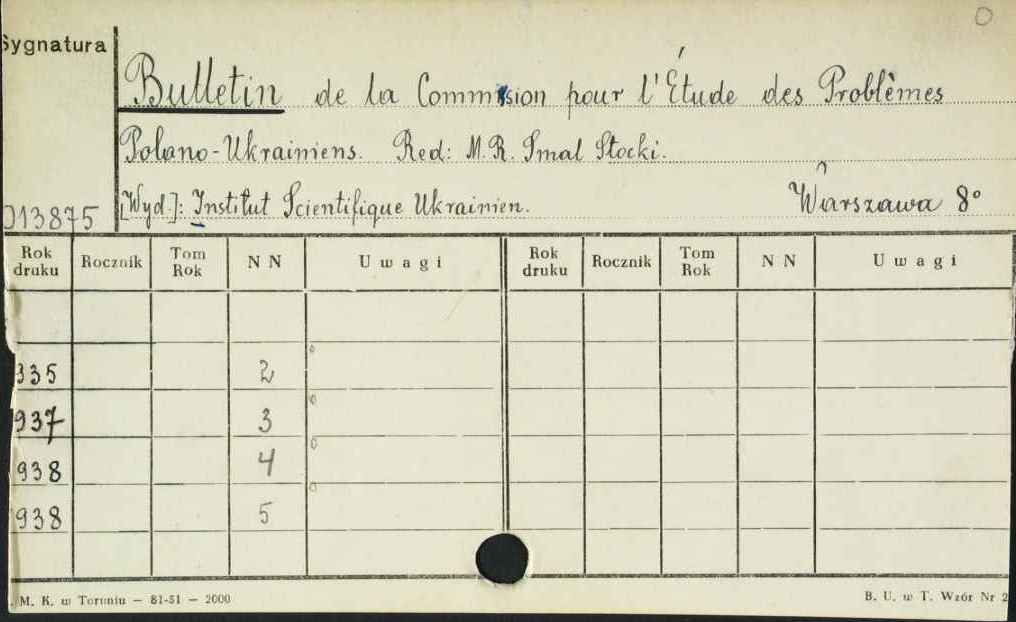 0
Sygnatura
Bulletin de la Commission pour l'Étude des Problèmes
Polono-Ukrainiens. Red: M.R. Smal Stocki.
[Wyd.]: Institut Scientifique Ukrainien. Warszawa 8°
013875
Rok druku Rocznik Tom Rok N N Uwagi Rok druku Rocznik Tom Rok N N Uwagi
935 2
937 3
938 4
938 5
M. K. w Toruniu — 81-51 — 2000 B. U. w T. Wzór Nr 2